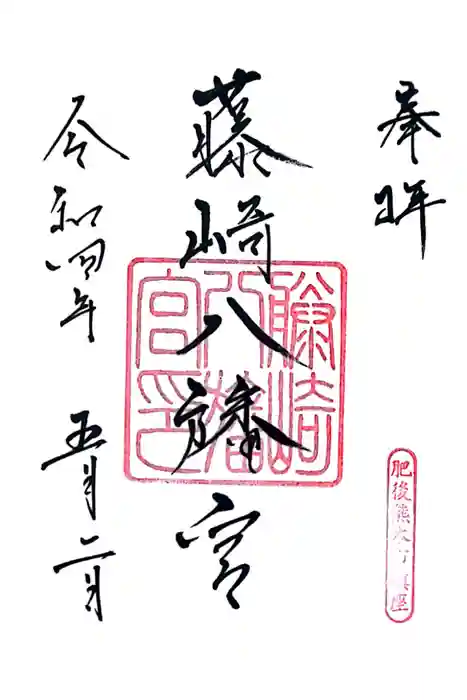 奉拝
藤崎八旛宮
令和四年 五月二日
藤崎八旛宮印
肥後熊本 鎮座